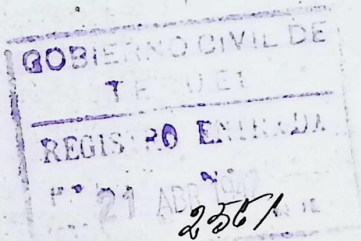 GOBIERNO CIVIL DE
TERUEL
REGISTRO ENTRADA
21 ABR
2561